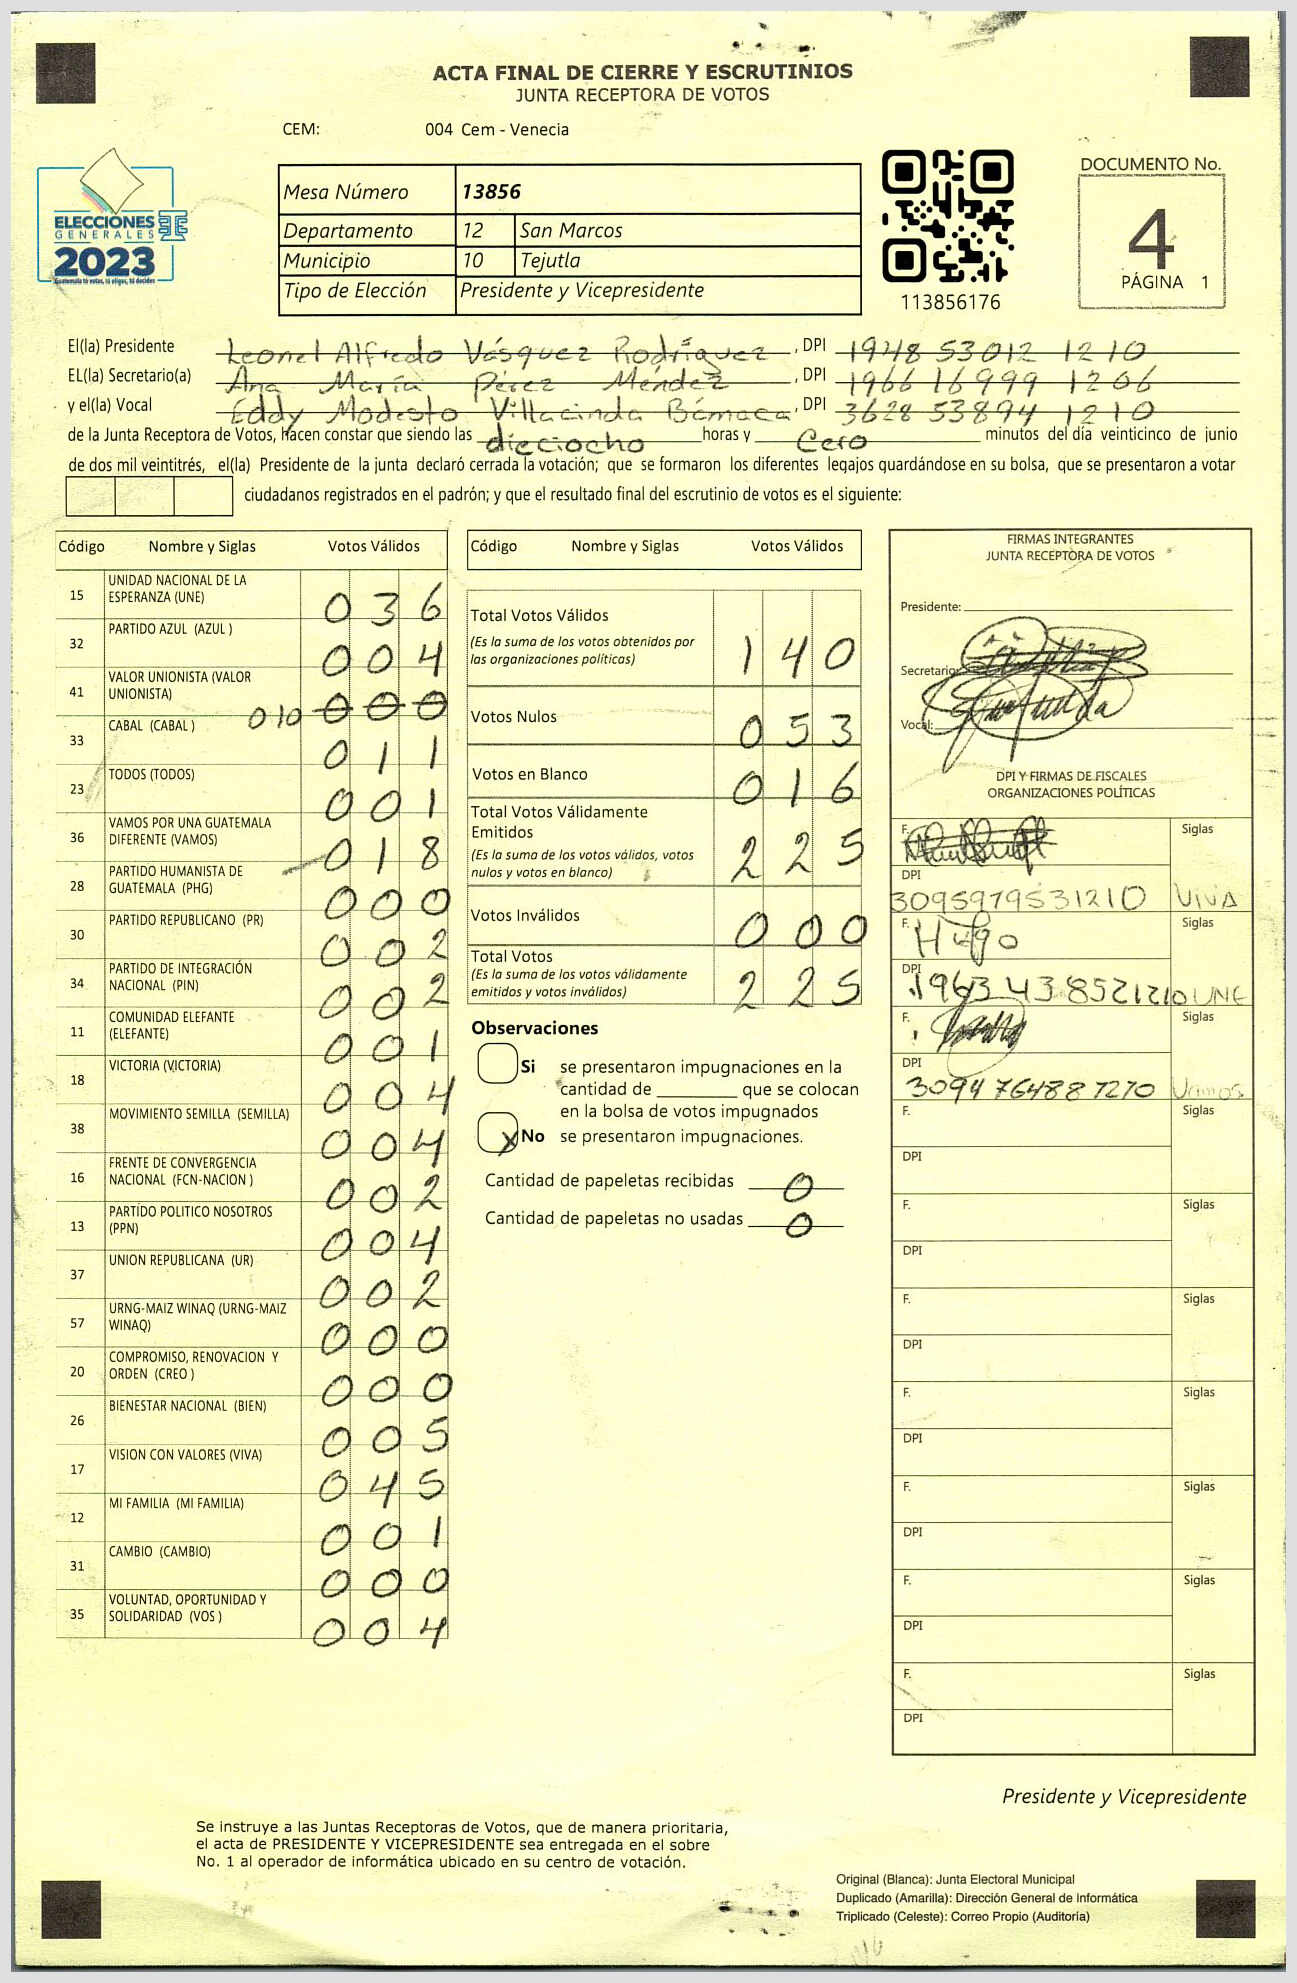 ACTA FINAL DE CIERRE Y ESCRUTINIOS
JUNTA RECEPTORA DE VOTOS
CEM: 004 Cem - Venecia
ELECCIONES
GENERALES
2023
Guatemala tú votas, tú eliges, tú decides
Mesa Número 13856
Departamento 12 San Marcos
Municipio 10 Tejutla
Tipo de Elección Presidente y Vicepresidente
113856176
DOCUMENTO No.
4
PÁGINA 1
El(la) Presidente Leonel Alfredo Vásquez Rodríguez, DPI 1948 53012 1210
EL(la) Secretario(a) Ana María Pérez Méndez, DPI 1966 16999 1206
y el(la) Vocal Eddy Modesto Villacinda Bámaca, DPI 3628 53894 1210
de la Junta Receptora de Votos, hacen constar que siendo las dieciocho horas y Cero minutos del día veinticinco de junio
de dos mil veintitrés, el(la) Presidente de la junta declaró cerrada la votación; que se formaron los diferentes legajos guardándose en su bolsa, que se presentaron a votar
ciudadanos registrados en el padrón; y que el resultado final del escrutinio de votos es el siguiente:
Código Nombre y Siglas Votos Válidos
15 UNIDAD NACIONAL DE LA
ESPERANZA (UNE) 036
32 PARTIDO AZUL (AZUL ) 004
41 VALOR UNIONISTA (VALOR
UNIONISTA) 010 000
33 CABAL (CABAL ) 011
23 TODOS (TODOS) 001
36 VAMOS POR UNA GUATEMALA
DIFERENTE (VAMOS) 018
28 PARTIDO HUMANISTA DE
GUATEMALA (PHG) 000
30 PARTIDO REPUBLICANO (PR) 002
34 PARTIDO DE INTEGRACIÓN
NACIONAL (PIN) 002
11 COMUNIDAD ELEFANTE
(ELEFANTE) 001
18 VICTORIA (VICTORIA) 004
38 MOVIMIENTO SEMILLA (SEMILLA) 004
16 FRENTE DE CONVERGENCIA
NACIONAL (FCN-NACION ) 002
13 PARTIDO POLITICO NOSOTROS
(PPN) 004
37 UNION REPUBLICANA (UR) 002
57 URNG-MAIZ WINAQ (URNG-MAIZ
WINAQ) 000
20 COMPROMISO, RENOVACION Y
ORDEN (CREO ) 000
26 BIENESTAR NACIONAL (BIEN) 005
17 VISION CON VALORES (VIVA) 045
12 MI FAMILIA (MI FAMILIA) 001
31 CAMBIO (CAMBIO) 000
35 VOLUNTAD, OPORTUNIDAD Y
SOLIDARIDAD (VOS ) 004
Código Nombre y Siglas Votos Válidos
Total Votos Válidos
(Es la suma de los votos obtenidos por
las organizaciones políticas) 140
Votos Nulos 053
Votos en Blanco 016
Total Votos Válidamente
Emitidos
(Es la suma de los votos válidos, votos
nulos y votos en blanco) 225
Votos Inválidos 000
Total Votos
(Es la suma de los votos válidamente
emitidos y votos inválidos) 225
Observaciones
Si se presentaron impugnaciones en la
cantidad de ________ que se colocan
en la bolsa de votos impugnados
X No se presentaron impugnaciones.
Cantidad de papeletas recibidas 0
Cantidad de papeletas no usadas 0
FIRMAS INTEGRANTES
JUNTA RECEPTORA DE VOTOS
Presidente:
Secretario:
Vocal:
DPI Y FIRMAS DE FISCALES
ORGANIZACIONES POLÍTICAS
F. Siglas
DPI
3095979531210 VIVA
F. Hugo Siglas
DPI
1963 43852 1210 UNE
F. Siglas
DPI
3094 76488 1210 Vamos
F. Siglas
DPI
F. Siglas
DPI
F. Siglas
DPI
F. Siglas
DPI
F. Siglas
DPI
F. Siglas
DPI
F. Siglas
DPI
Presidente y Vicepresidente
Se instruye a las Juntas Receptoras de Votos, que de manera prioritaria,
el acta de PRESIDENTE Y VICEPRESIDENTE sea entregada en el sobre
No. 1 al operador de informática ubicado en su centro de votación.
Original (Blanca): Junta Electoral Municipal
Duplicado (Amarilla): Dirección General de Informática
Triplicado (Celeste): Correo Propio (Auditoría)